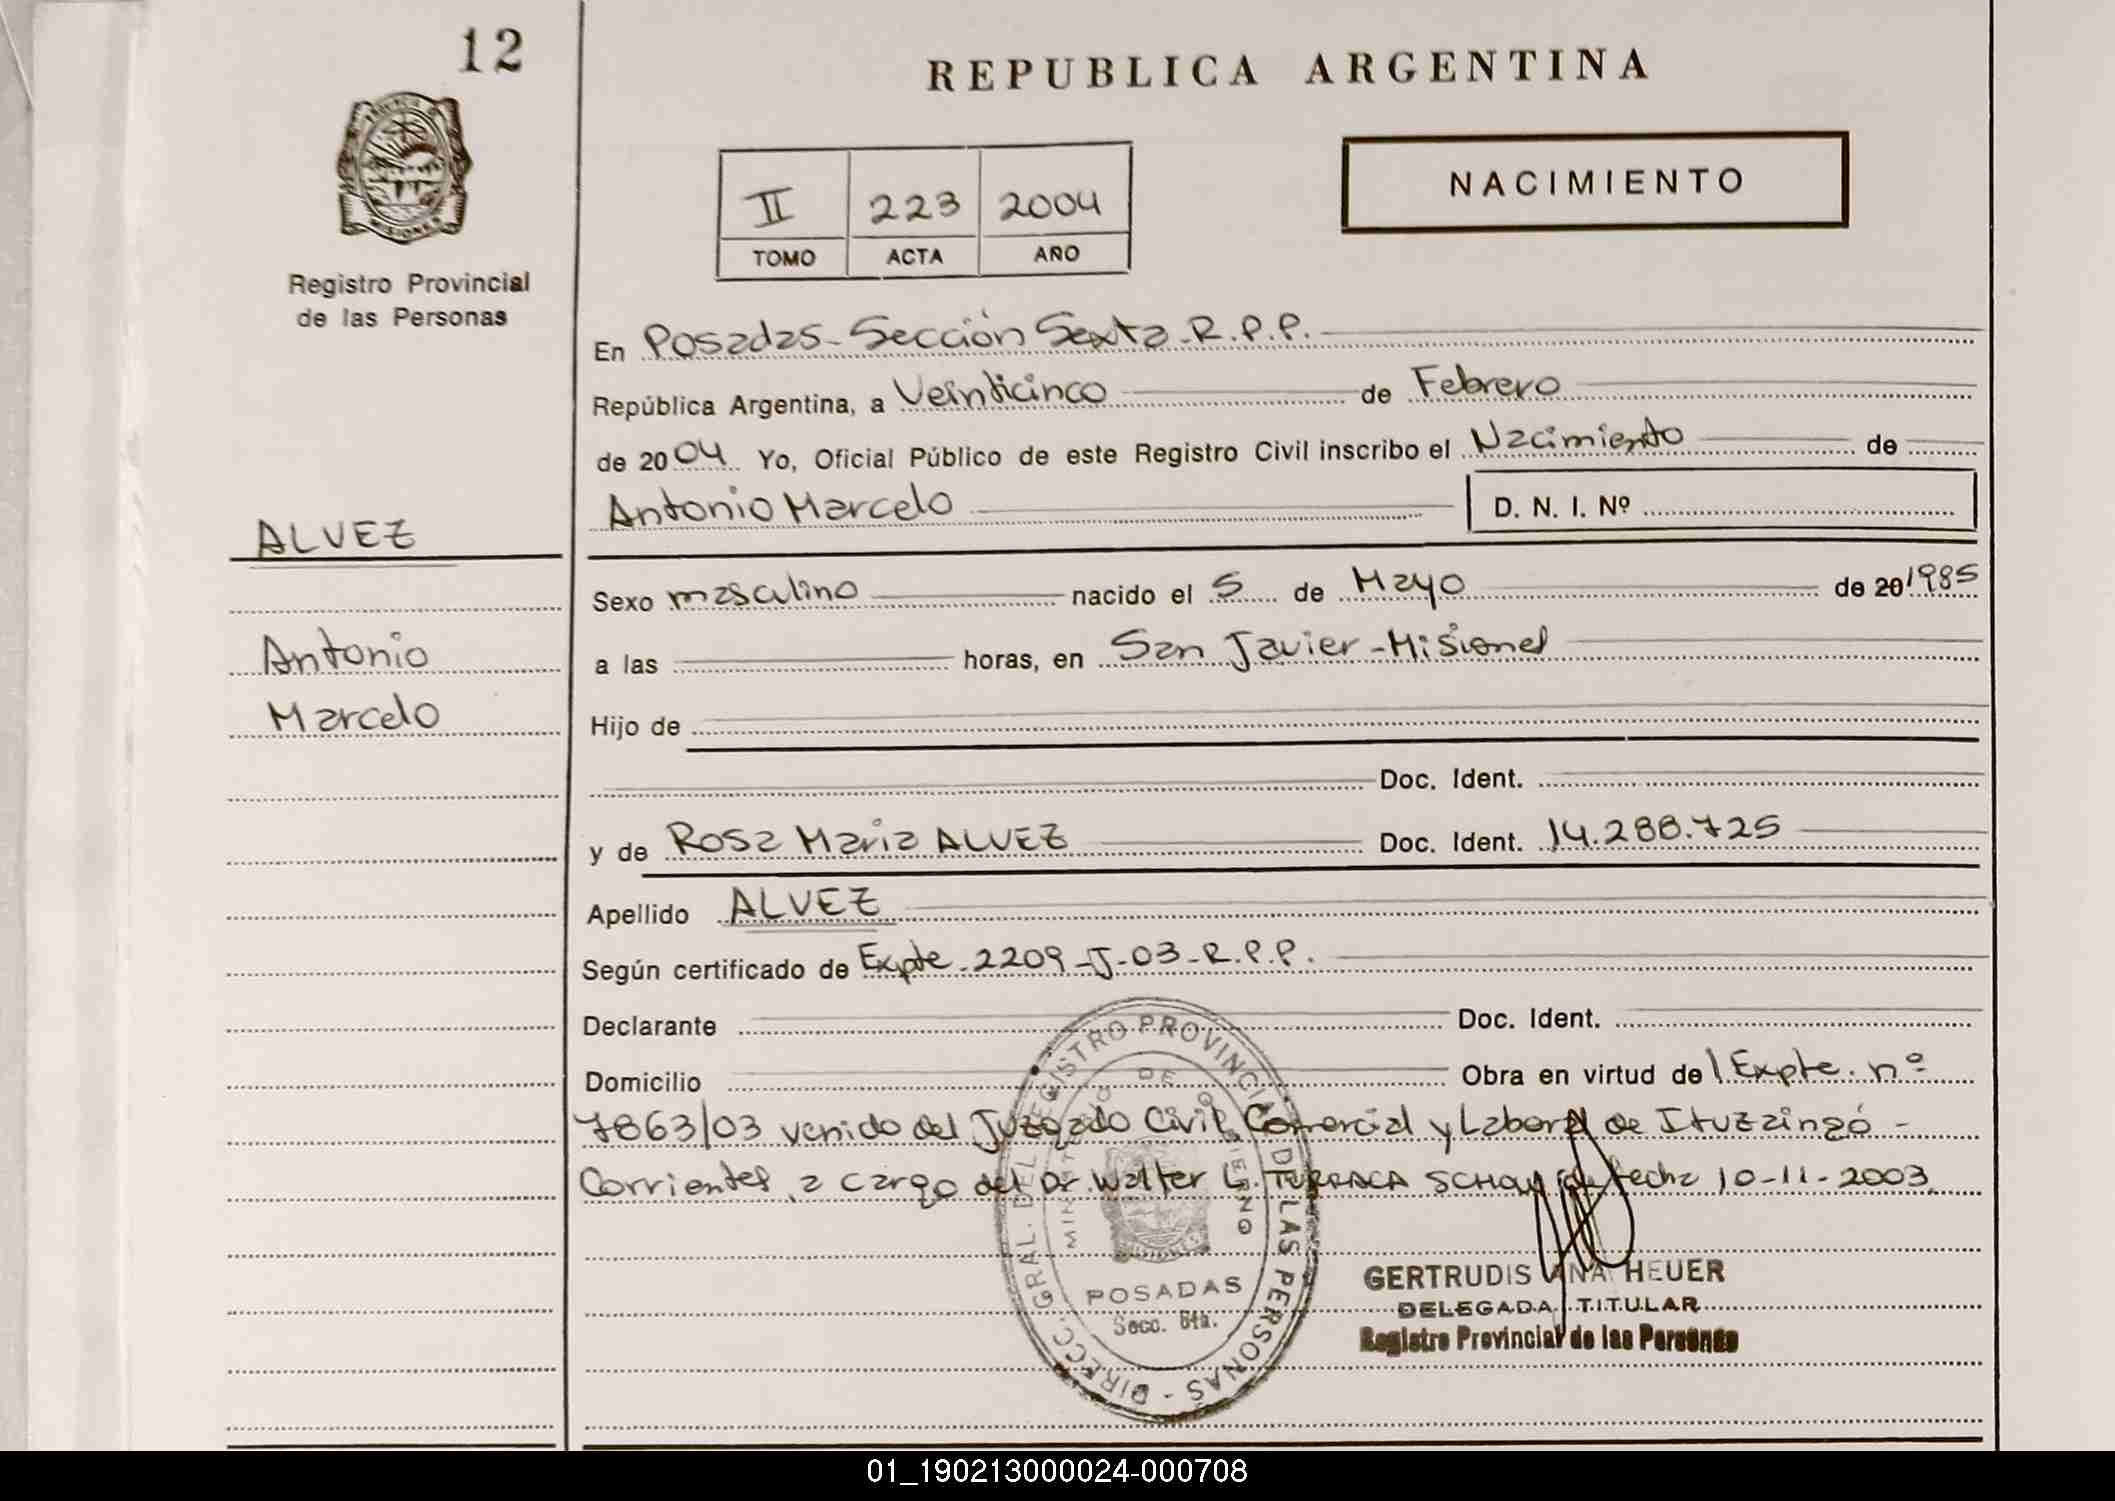 12
REPUBLICA ARGENTINA
MISIONES
Registro Provincial
de las Personas
II 223 2004
TOMO ACTA AÑO
NACIMIENTO
En Posadas - Sección Sexta - R.P.P.
República Argentina, a Veinticinco de Febrero
de 2004 Yo, Oficial Público de este Registro Civil inscribo el Nacimiento de
Antonio Marcelo D. N. I. Nº
ALVEZ
Antonio
Marcelo
Sexo masculino nacido el 5 de Mayo de 20 1985
a las horas, en San Javier - Misiones
Hijo de
Doc. Ident.
y de Rosa Maria ALVEZ Doc. Ident. 14.288.725
Apellido ALVEZ
Según certificado de Expte - 2209 - J - 03 - R.P.P.
Declarante Doc. Ident.
Domicilio Obra en virtud del Expte. nº
7863/03 venido del Juzgado Civil, Comercial y Laboral de Ituzaingó -
Corrientes, a cargo del Dr. Walter de fecha 10-11-2003
DIRECC. GRAL. DEL REGISTRO PROVINCIAL DE LAS PERSONAS -
MINISTERIO DE GOBIERNO
MISIONES
POSADAS
Secc. 6ta.
GERTRUDIS ANA HEUER
DELEGADA TITULAR
Registro Provincial de las Personas
01_190213000024-000708